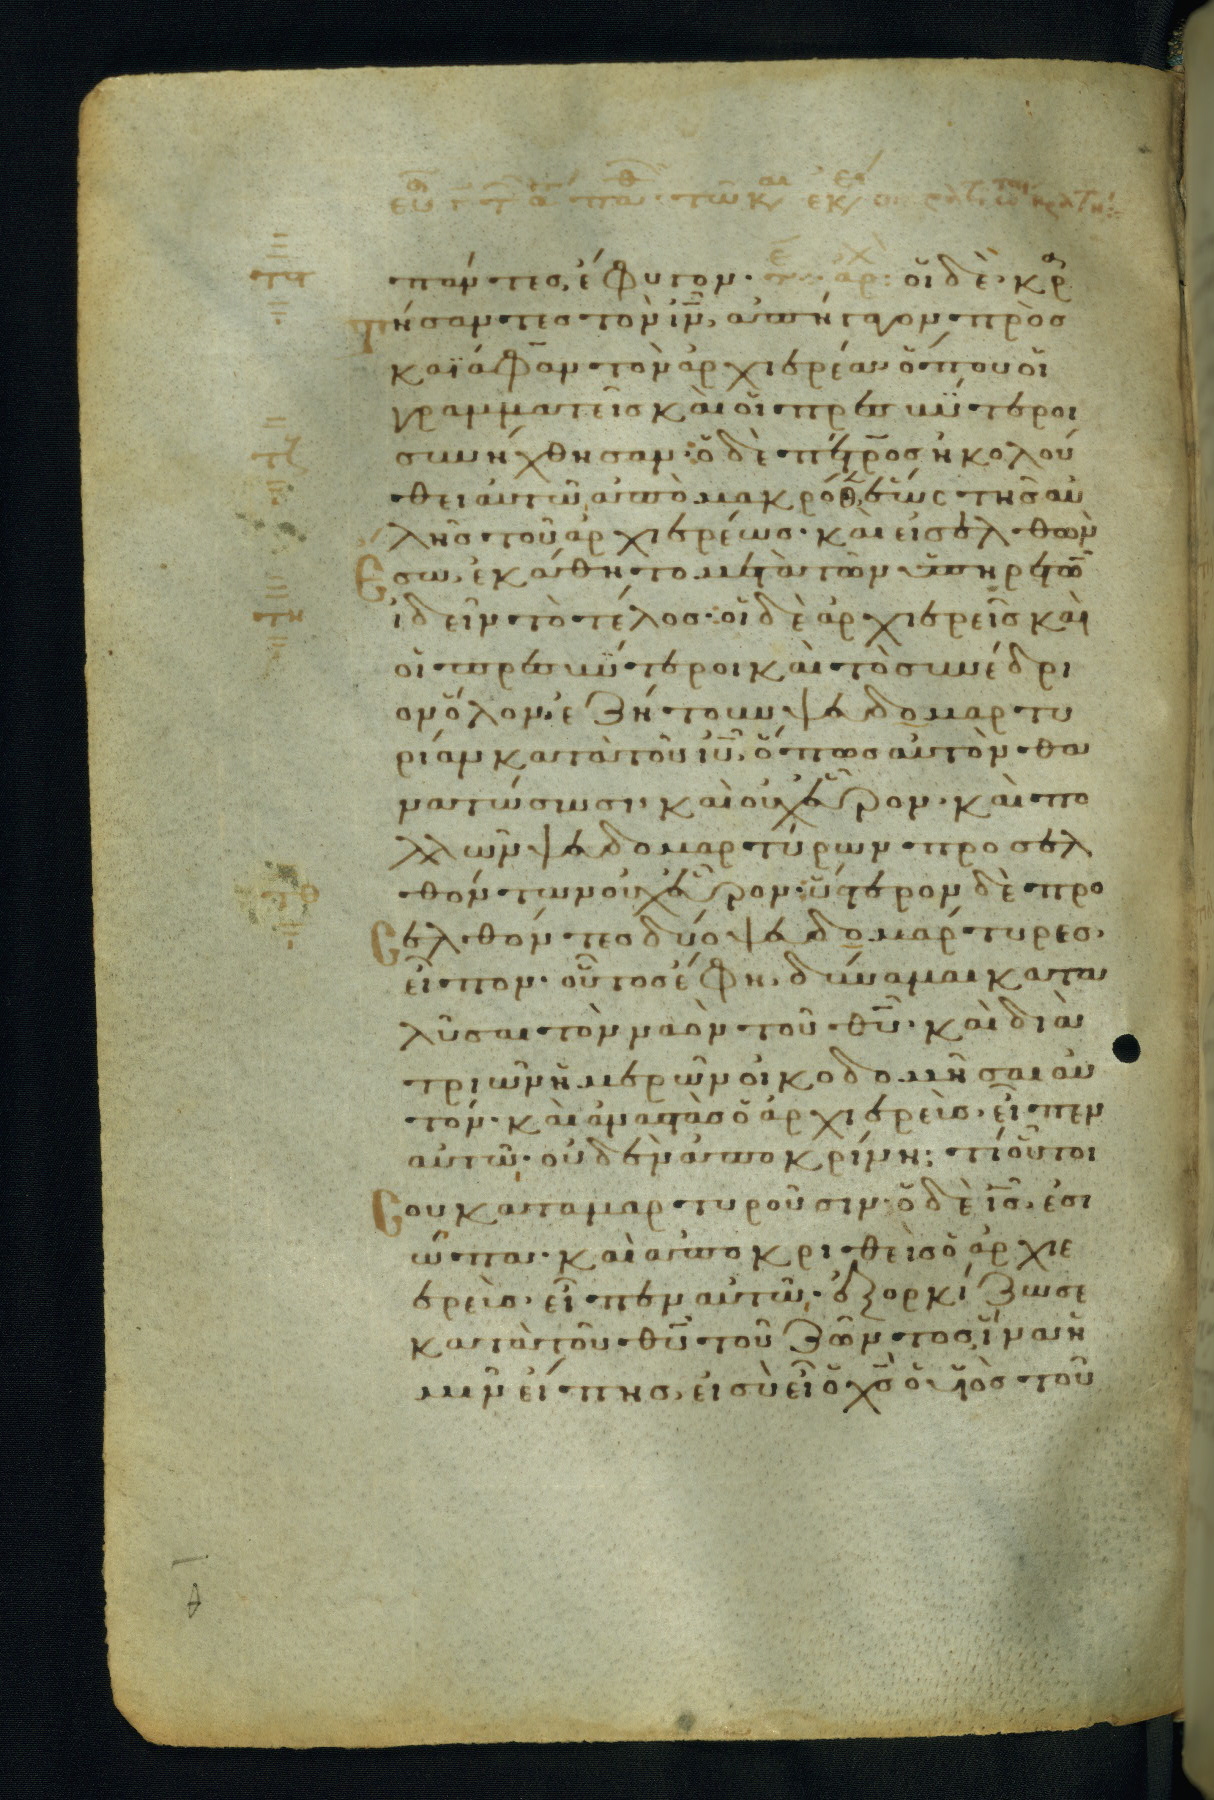 πάντες, ἔφυγον. αρχ: οἱ δὲ κρα
τήσαντες τὸν ιν, ἀπήγαγον πρὸς
καϊάφαν τὸν ἀρχιερέα· ὅπου οἱ
γραμματεῖς καὶ οἱ πρεσβύτεροι
συνήχθησαν· ὁ δὲ πέτρος ἠκολού
θει αὐτῶ ἀπὸ μακρόθεν, ἕως τῆς αὐ
λῆς τοῦ ἀρχιερέως· καὶ εἰσελθὼν
ἔσω, ἐκάθητο μετὰ τῶν ὑπηρετῶν
ἰδεῖν τὸ τέλος· οἱ δὲ ἀρχιερεῖς καὶ
οἱ πρεσβύτεροι καὶ τὸ συνέδρι
ον ὅλον, ἐζήτουν ψευδομαρτυ
ρίαν κατὰ τοῦ ιυ, ὅπως αὐτὸν θα
νατώσωσι, καὶ οὐχ εὗρον· καὶ πο
λλῶν ψευδομαρτύρων προσελ
θόντων οὐχ εὗρον· ὕστερον δὲ προ
σελθόντες δύο ψευδομάρτυρες,
εἶπον· οὗτος ἔφη, δύναμαι κατα
λῦσαι τὸν ναὸν τοῦ θυ· καὶ διὰ
τριῶν ἡμερῶν οἰκοδομῆσαι αὐ
τόν· καὶ ἀναστὰς ὁ ἀρχιερεὺς, εἶπεν
αὐτῶ· οὐδὲν ἀποκρίνη; τί οὗτοί
σου καταμαρτυροῦσιν· ὁ δὲ ις, ἐσι
ώπα· καὶ ἀποκριθεὶς ὁ ἀρχιε
ερεὺς, εἶπεν αὐτῶ· ἐξορκίζω σε
κατὰ τοῦ θυ τοῦ ζῶντος, ἵνα ἡ
μῖν εἴπης, εἰ σὺ εἶ ὁ χς ὁ υἱὸς τοῦ